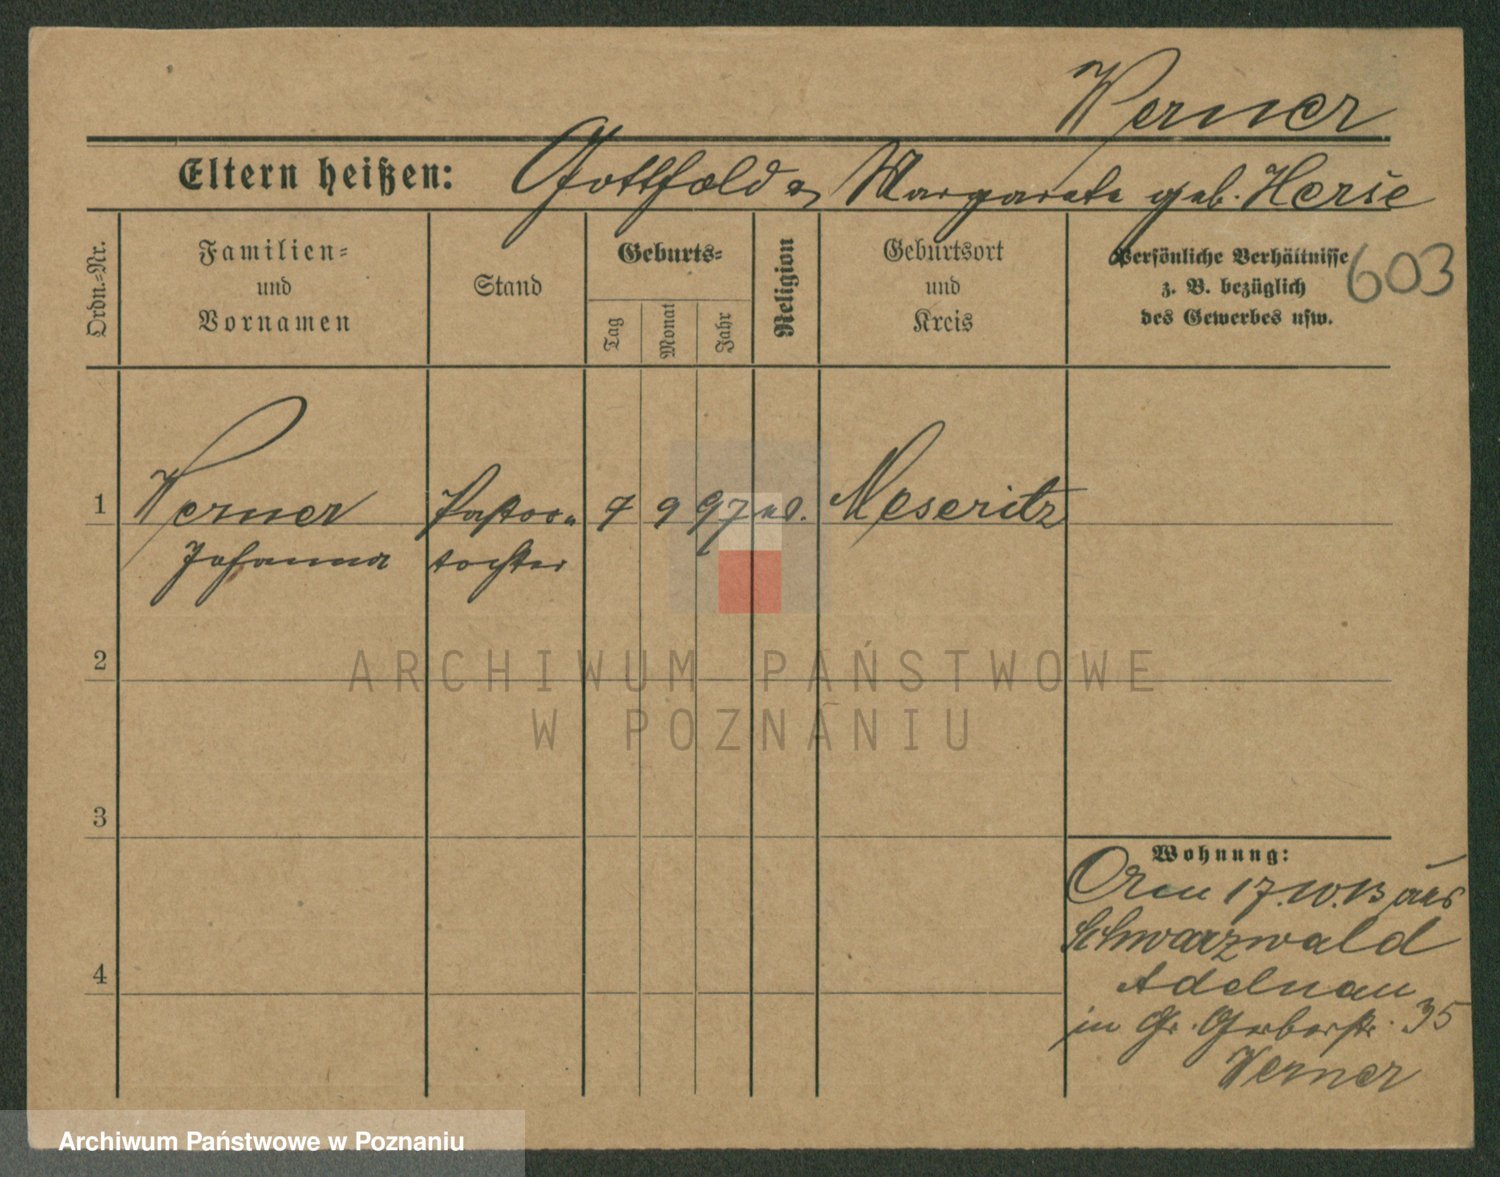 Werner
Eltern heißen: Gotthold u Margarete geb. Herse
Ordn.-Nr.
Familien-
und
Vornamen
Stand
Geburts-
Tag
Monat
Jahr
Religion
Geburtsort
und
Kreis
Persönliche Verhältnisse
z. B. bezüglich
des Gewerbes usw.
603
1 Werner Pastors 7 9 97 Meseritz
Johanna tochter
2
3
4
Wohnung:
17.10.13 aus
Schwarzwald
Adelnau
in Gr. Gerberstr. 35
Werner
ARCHIWUM PAŃSTWOWE
W POZNANIU
Archiwum Państwowe w Poznaniu